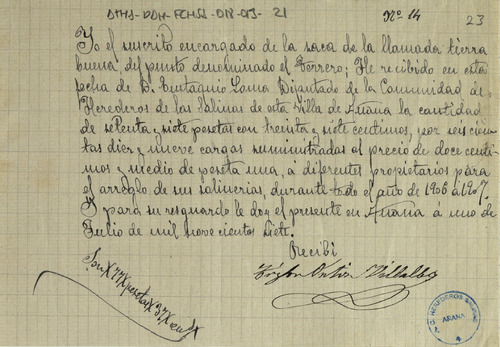 Nº 14
23
Yo el suscrito encargado de la saca de la llamada tierra
buena, del punto denominado el Ferrero; He recibido en esta
fecha de D. Eustaquio Loma Diputado de la Comunidad de
Herederos de las Salinas de esta Villa de Añana la cantidad
de setenta y siete pesetas con treinta y siete centimos, por seiscien
tas diez y nueve cargas suministradas al precio de doce centi
mos y medio de peseta una, á diferentes propietarios para
el arreglo de sus salinerias, durante todo el año de 1906 á 1907.
Y para su resguardo le doy el presente en Añana á uno de
Julio de mil novecientos siete.
Recibi
Son X 77 X pesetas X 37 X cent X
Villalba
HEREDEROS
AÑANA